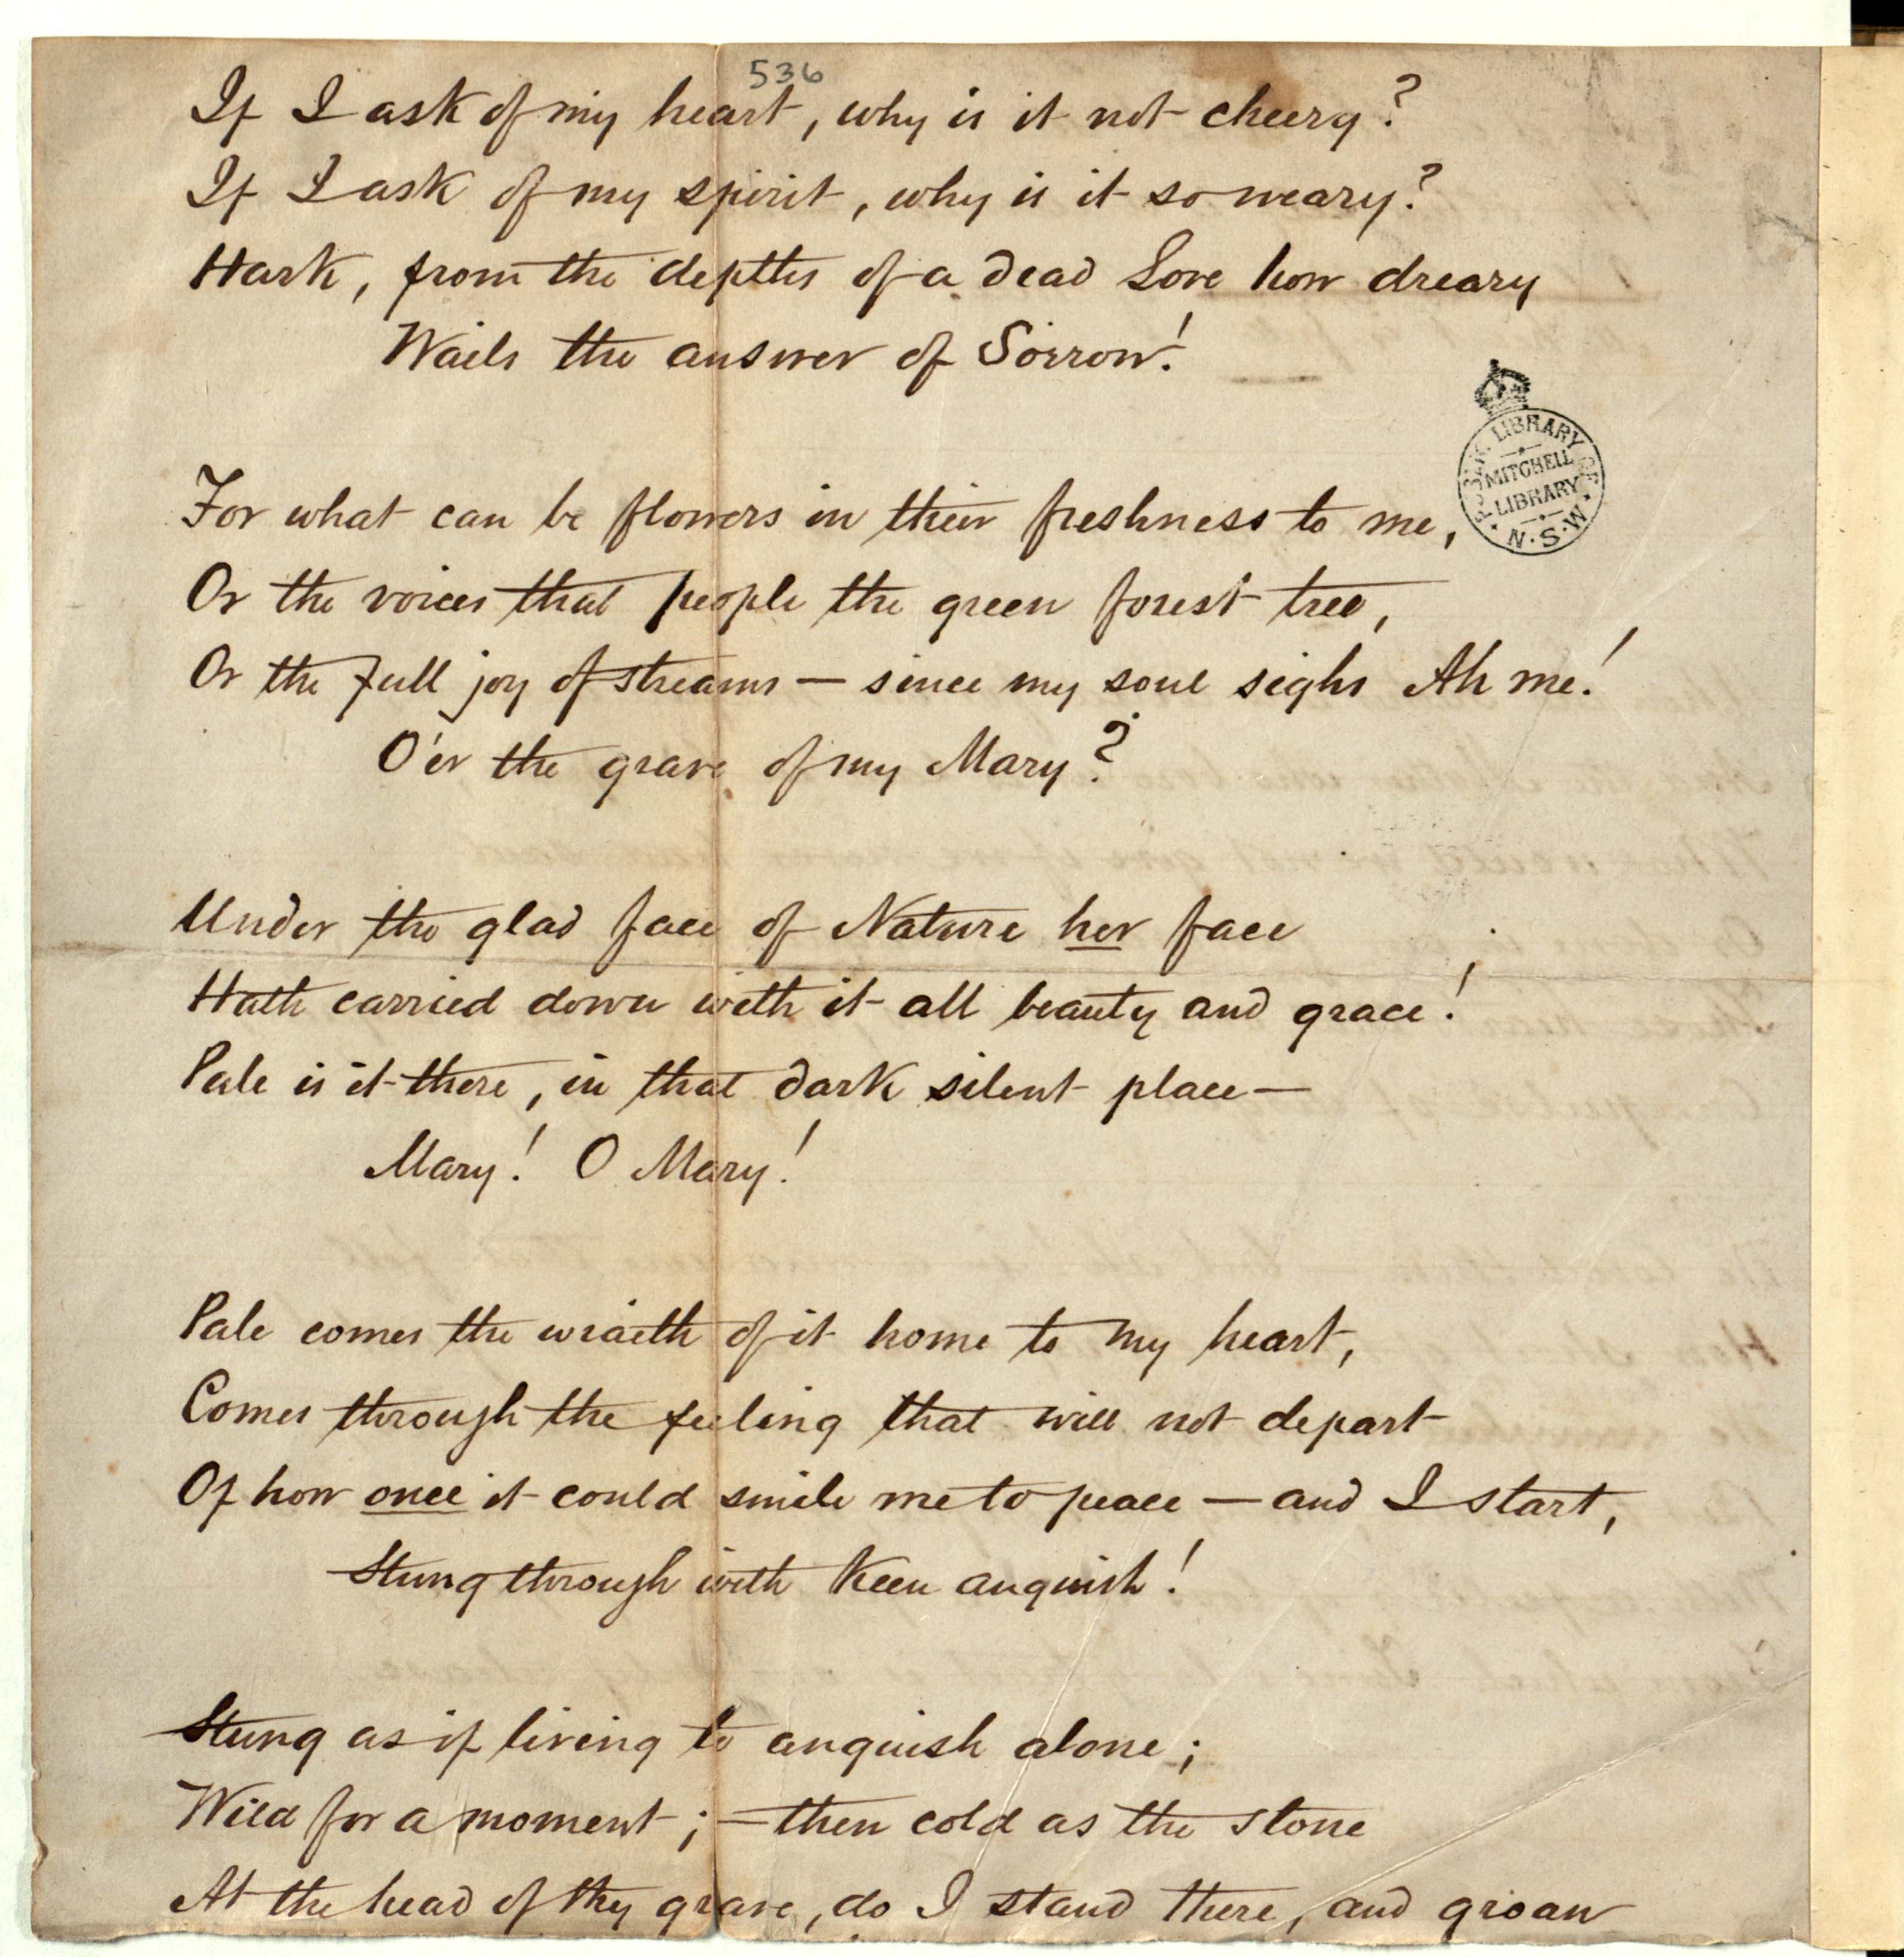 536
If I ask of my heart, why is it not cheery?
If I ask of my spirit, why is it so weary?
Hark, from the depths of a dead Love how dreary
Wails the answer of Sorrow!
PUBLIC LIBRARY OF
MITCHELL
LIBRARY
N.S.W.
For what can be flowers in their freshness to me,
Or the voices that people the green forest tree,
Or the full joy of streams — since my soul sighs Ah me!
O'er the grave of my Mary?
Under the glad face of Nature her face
Hath carried down with it all beauty and grace!
Pale is it there, in that dark silent place —
Mary! O Mary!
Pale comes the wraith of it home to my heart,
Comes through the feeling that will not depart
Of how once it could smile me to peace — and I start,
Stung through with keen anguish!
Stung as if living to anguish alone;
Wild for a moment; — then cold as the stone
At the head of thy grave, do I stand there, and groan